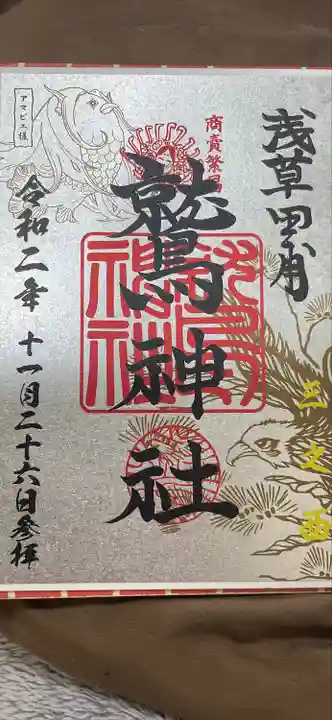 浅草田甫
三之酉
商売繁昌
鷲神社
アマビエ様
令和二年 十一月二十六日参拝